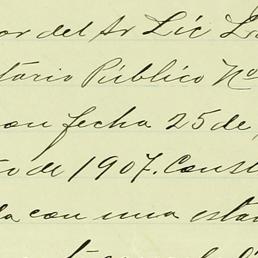 or del Sr Lic L
tario Público No
con fecha 25 de
to de 1907. Const
da con una estam